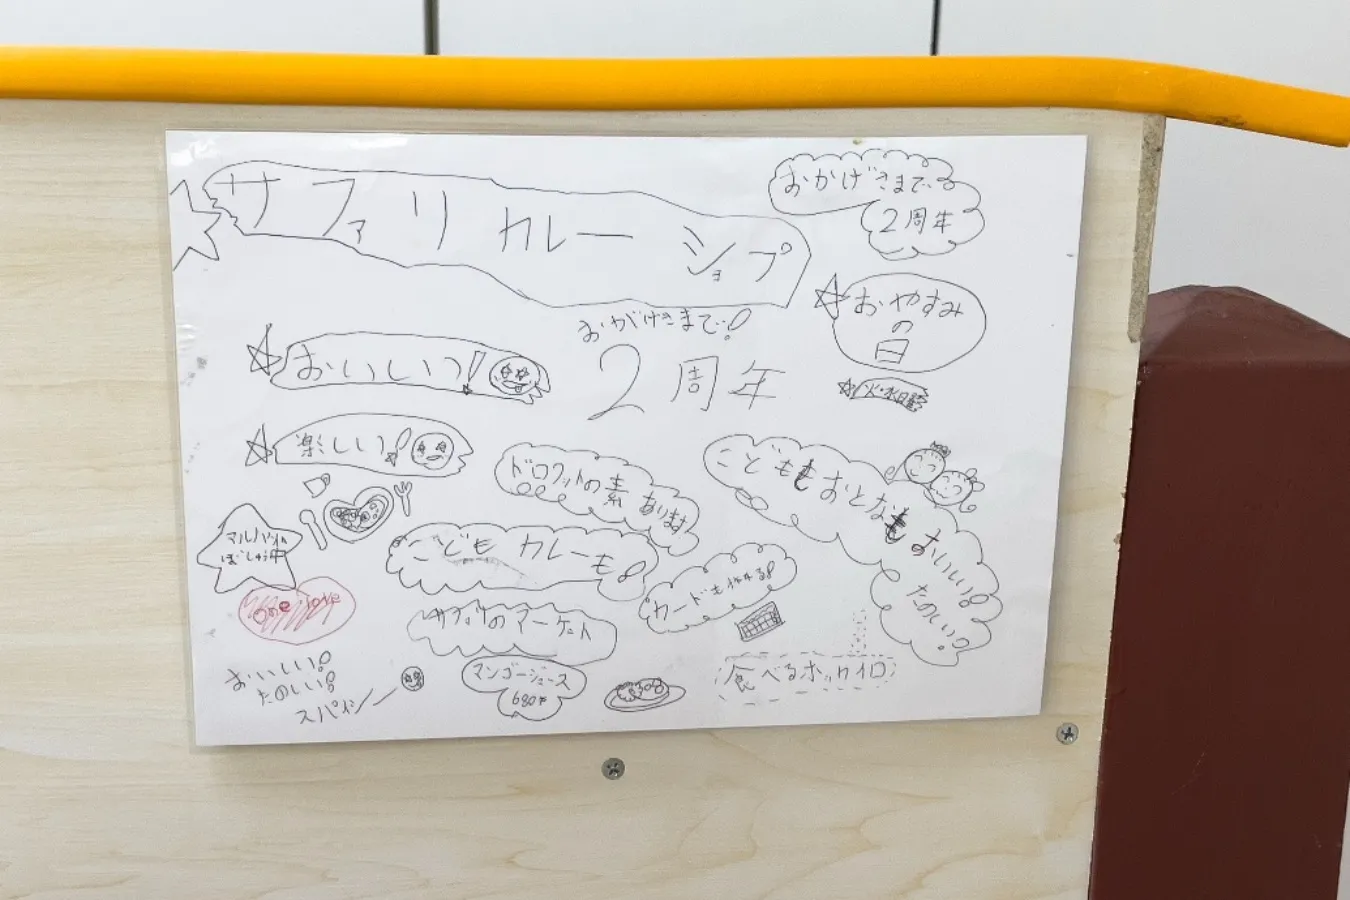 サファリカレーショプ
おかげさまで
2周年
おやすみ
の
日
火・水曜
おかげさまで!
2周年
おいしいっ!
楽しい!
ドロワットの素あります
こどももおとなもおいしい!
たのしい!
ぼしゅう中
こどもカレーも!
カードも作れる!
one love
サファリのマーケット
マンゴージュース
680円
食べるホッカイロ
おいしい!
たのしい!
スパイシー